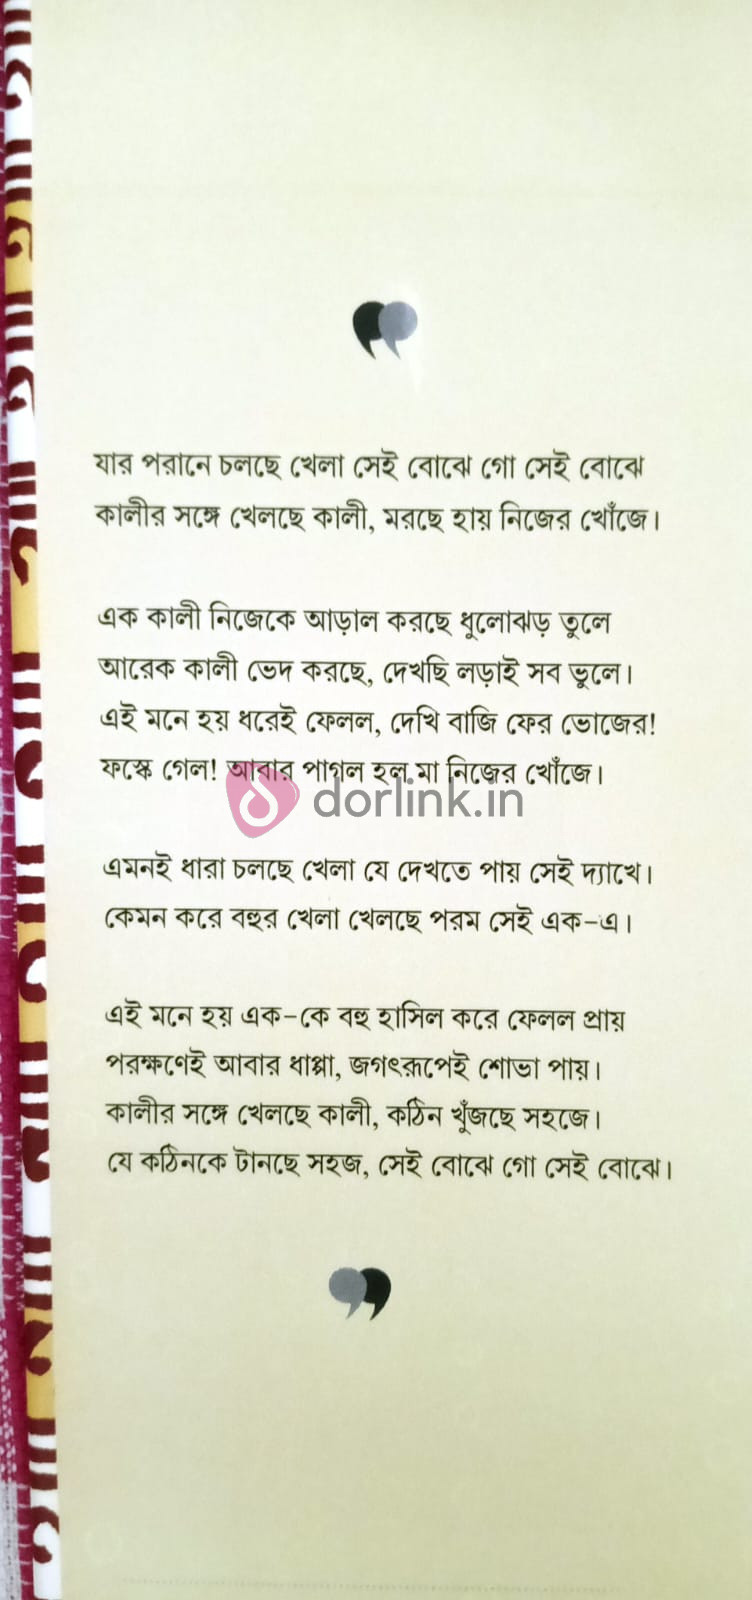 যার পরানে চলছে খেলা সেই বোঝে গো সেই বোঝে
কালীর সঙ্গে খেলছে কালী, মরছে হায় নিজের খোঁজে।
এক কালী নিজেকে আড়াল করছে ধুলোঝড় তুলে
আরেক কালী ভেদ করছে, দেখছি লড়াই সব ভুলে।
এই মনে হয় ধরেই ফেলল, দেখি বাজি ফের ভোজের!
ফস্কে গেল! আবার পাগল হল মা নিজের খোঁজে।
dorlink.in
এমনই ধারা চলছে খেলা যে দেখতে পায় সেই দ্যাখে।
কেমন করে বহুর খেলা খেলছে পরম সেই এক-এ।
এই মনে হয় এক-কে বহু হাসিল করে ফেলল প্রায়
পরক্ষণেই আবার ধাপ্পা, জগৎরূপেই শোভা পায়।
কালীর সঙ্গে খেলছে কালী, কঠিন খুঁজছে সহজে।
যে কঠিনকে টানছে সহজ, সেই বোঝে গো সেই বোঝে।